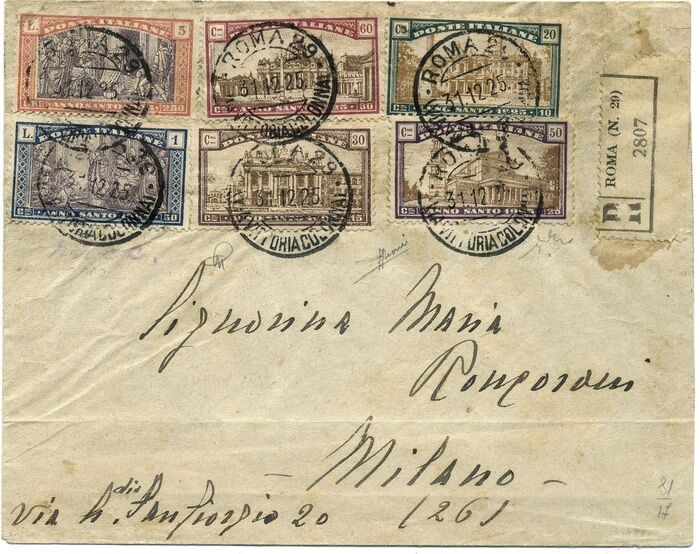 L. POSTE ITALIANE 5
ANNO SANTO 2.50
Cmi POSTE ITALIANE 60
ANNO SANTO 1925 30
Cmi POSTE ITALIANE 20
ANNO SANTO 1925 10
L. POSTE ITALIANE 1
Cmi ANNO SANTO 50
Cmi POSTE ITALIANE 30
ANNO SANTO 15
Cmi POSTE ITALIANE 50
ANNO SANTO 1925 25
ROMA 29
31.12.25
(VITTORIA COLONNA)
R ROMA (N. 29)
2807
Signorina Maria
Milano
via
Sangiorgio 20 (26)